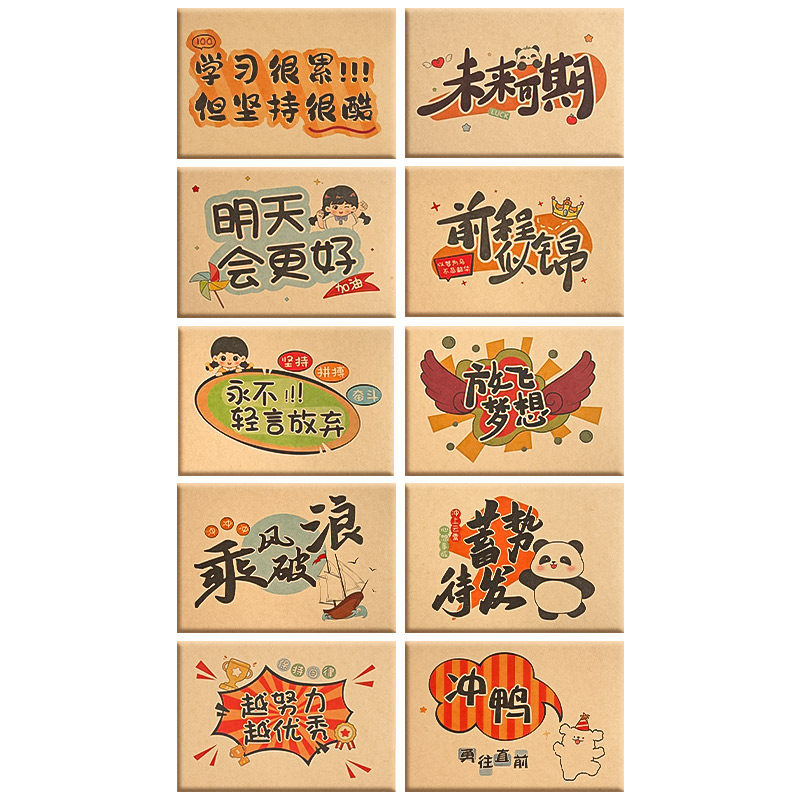 100
学习很累!!!
但坚持很酷
未来可期
LUCK
明天
会更好
加油
前程
似锦
以梦为马
不负韶华
坚持
拼搏
奋斗
永不!!!
轻言放弃
放飞
梦想
冲冲冲
乘风破浪
冲上云霄
蓄势
待发
保持自律
越努力
越优秀
冲鸭
勇往直前